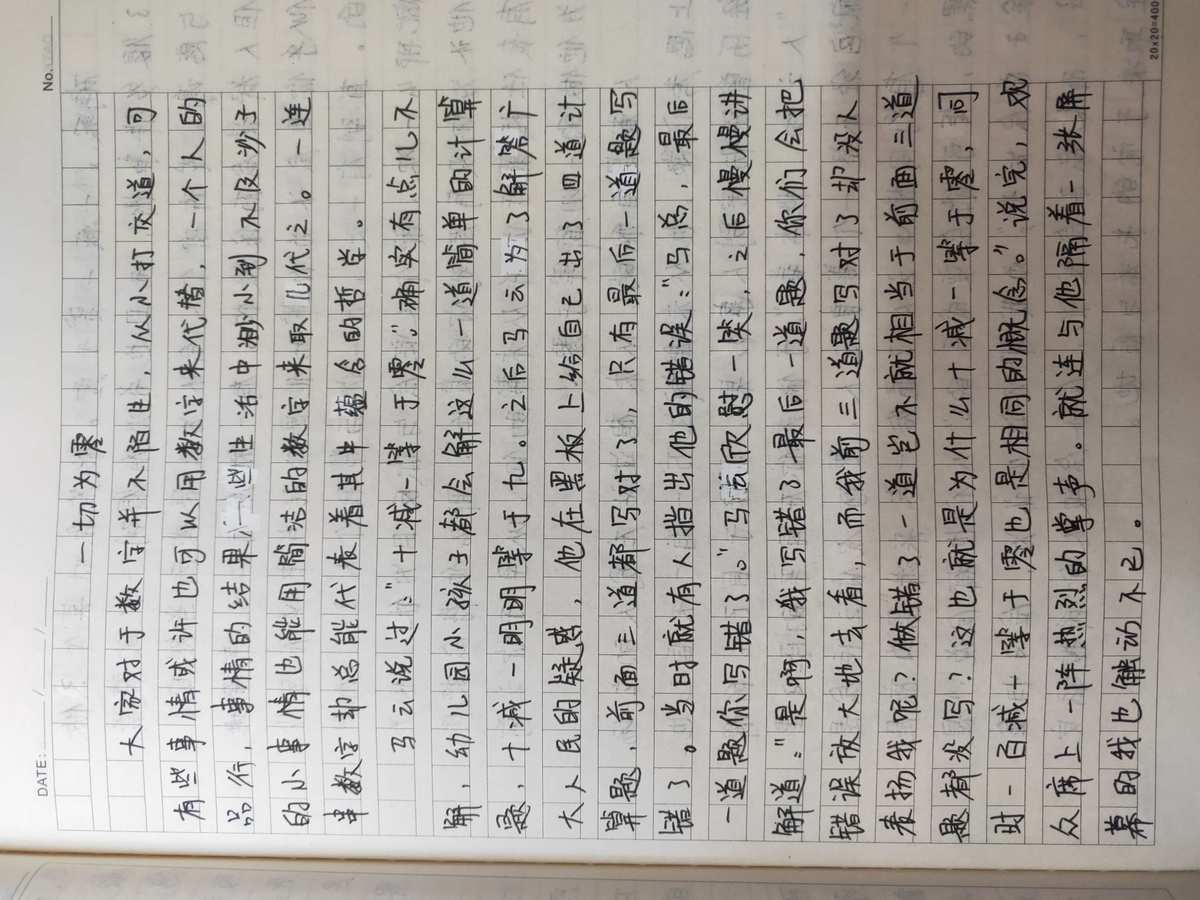 No.
DATE: / /
一切为零
大家对于数字并不陌生，从小打交道，可
有些事情或许也可以用数字来代替，一个人的
品行，事情的结果，一些生活中渺小到不及沙子
的小事情也能用简洁的数字来取代之。一连
串数字却总能代表着其中蕴含的哲学。
马云说过：“十减一等于零。”确实有点儿不
解，幼儿园小孩子都会解这么一道简单的计算
题，十减一明明等于九。之后马云为了解答广
大人民的疑惑，他在黑板上给自己出了四道计
算题，前面三道都写对了，只有最后一道题写
错了。当时就有人指出他的错误：“马总，最后
一道题你写错了。”马云欣慰一笑，之后慢慢讲
解道：“是啊，我写错了最后一道题，你们会把
错误放大地去看，而我前三道题写对了却没人
表扬我呢？做错了一道岂不就相当于前面三道
题都没写？这也就是为什么十减一等于零，同
时一百减一等于零也是相同的概念。”说完，观
众席上一阵热烈的掌声。就连与他隔着一张屏
幕的我也触动不已。
20×20=400